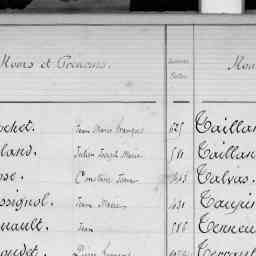 Noms et Prénoms.
Nom
ochet. Jean Marie François 675 Taillan
land. Julien Joseph Marie 581 Taillan
se. Constant Jean Talvas.
ssignol. Jean Marie 431 Taupin
nault. Jean 586
oudet. Pierre François